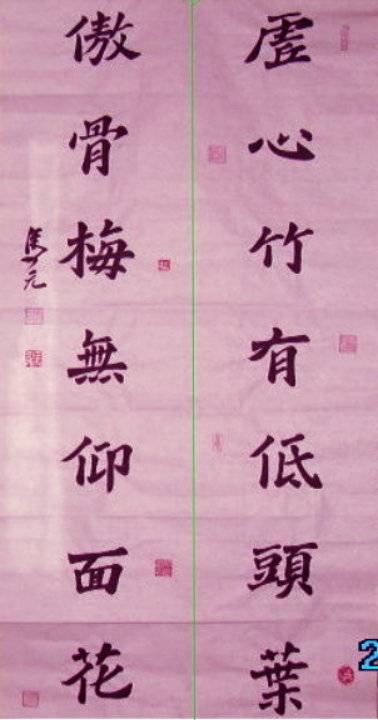 虛心竹有低頭葉
傲骨梅無仰面花
2